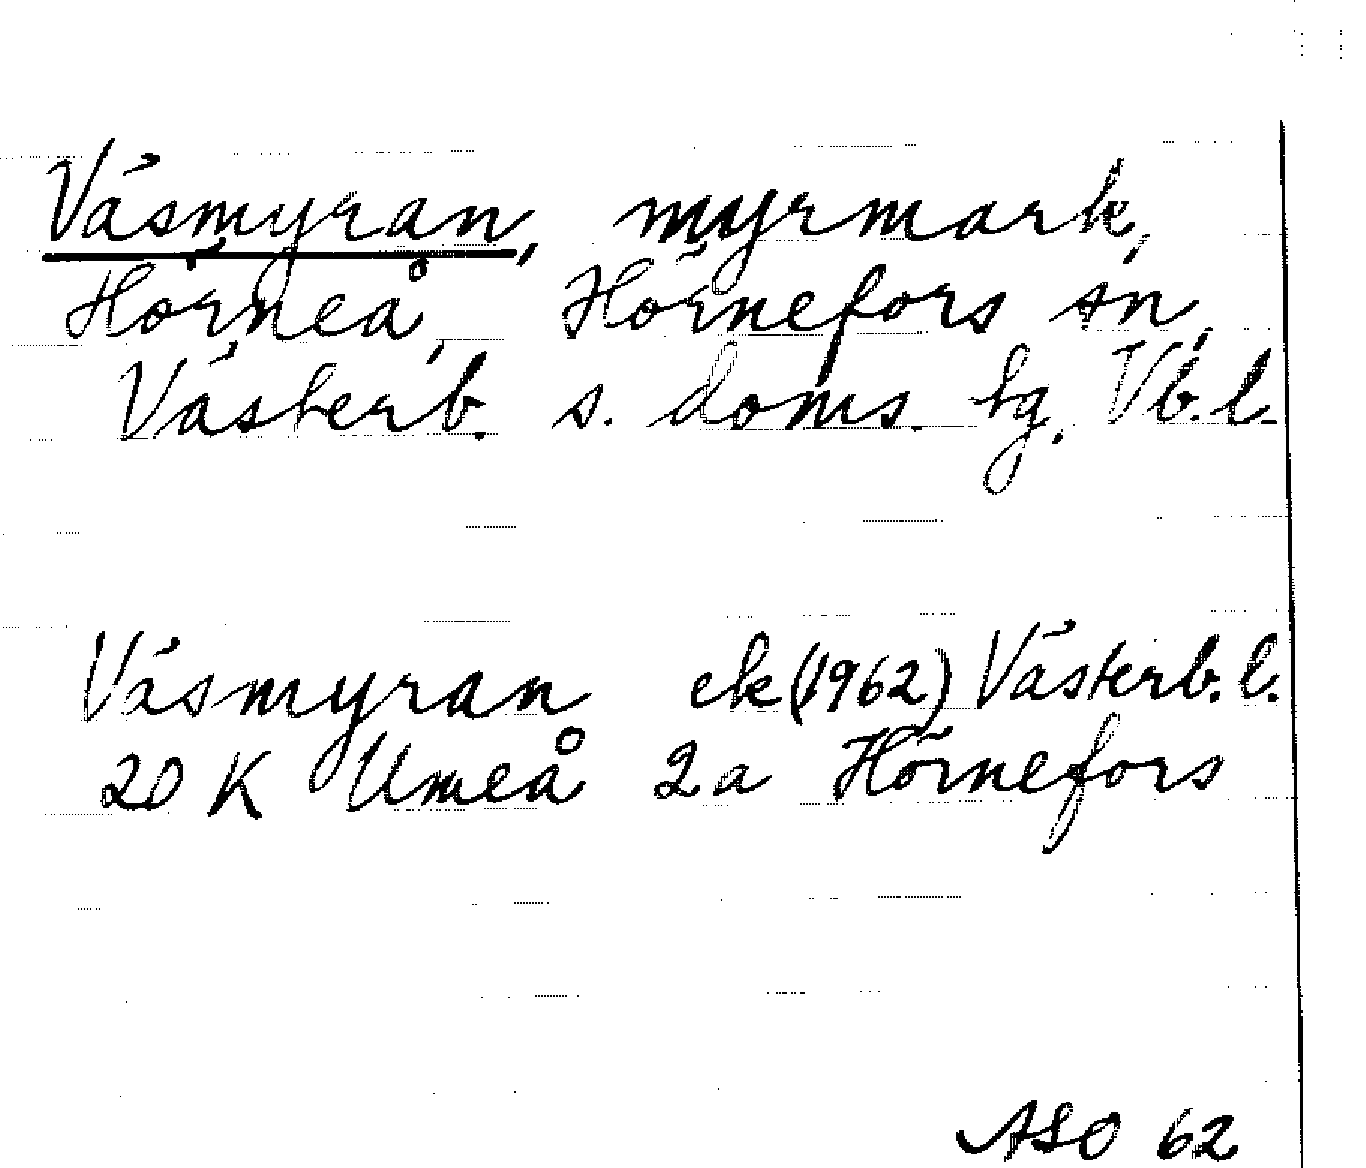 Väsmyran, myrmark,
Hörneå, Hörnefors sn,
Västerb. s. doms. tg. Vb.l.
Väsmyran ek (1962) Västerb.l.
20 K Umeå 2a Hörnefors
ASO 62